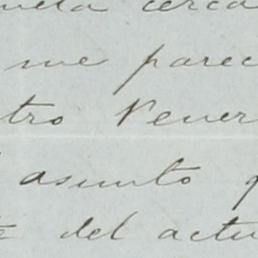 cerca
me parec
tro Vener
asunto p
del actu